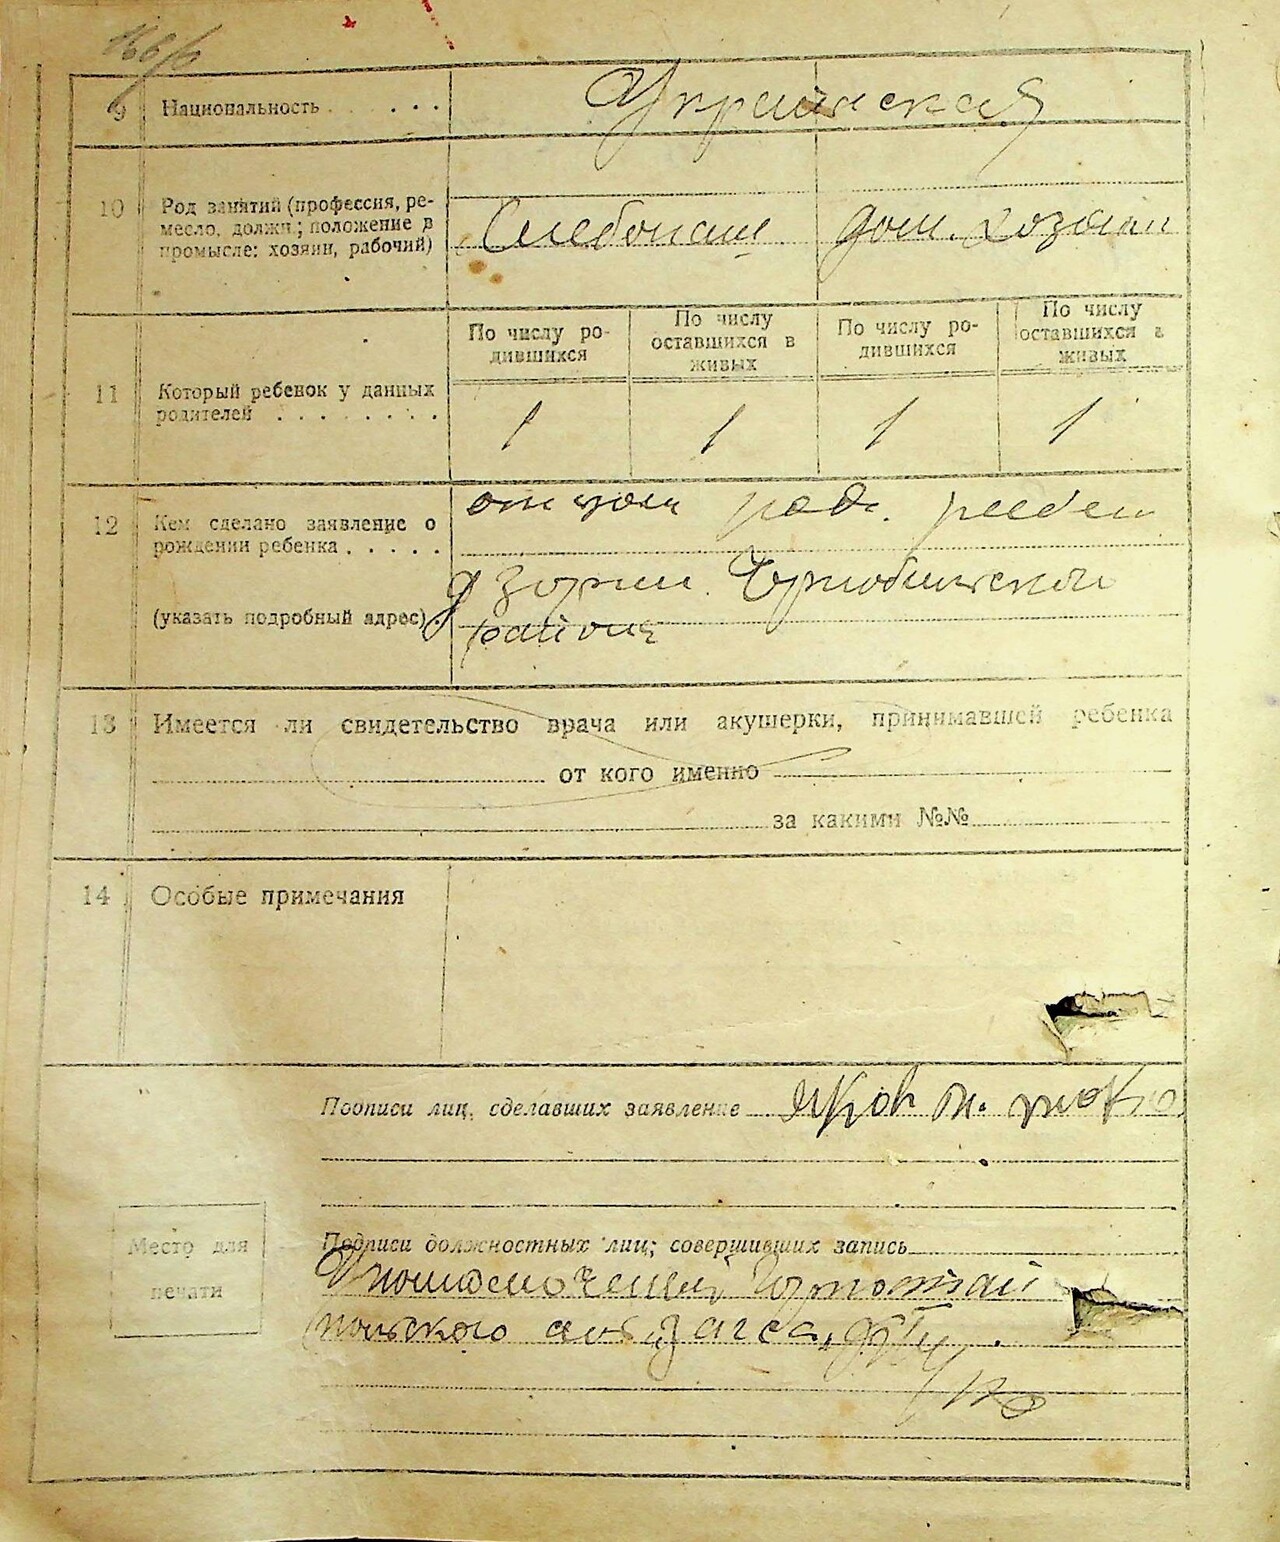 9 Национальность . . . . Украинская
10 Род занятий (профессия, ре-
месло, должн.; положение в
промысле: хозяин, рабочий)
Хлебопаш дом. хозяйн
По числу ро-
дившихся
По числу
оставшихся в
живых
По числу ро-
дившихся
По числу
оставшихся в
живых
11 Который ребенок у данных
родителей . . . . . . . .
1 1 1 1
12 Кем сделано заявление о
рождении ребенка . . . . .
(указать подробный адрес) .
отцом
Чорнобильской
района
13 Имеется ли свидетельство врача или акушерки, принимавшей ребенка
от кого именно
за какими №№
14 Особые примечания
Подписи лиц, сделавших заявление
Место для
печати
Подписи должностных лиц; совершивших запись
Горностай
польского загса